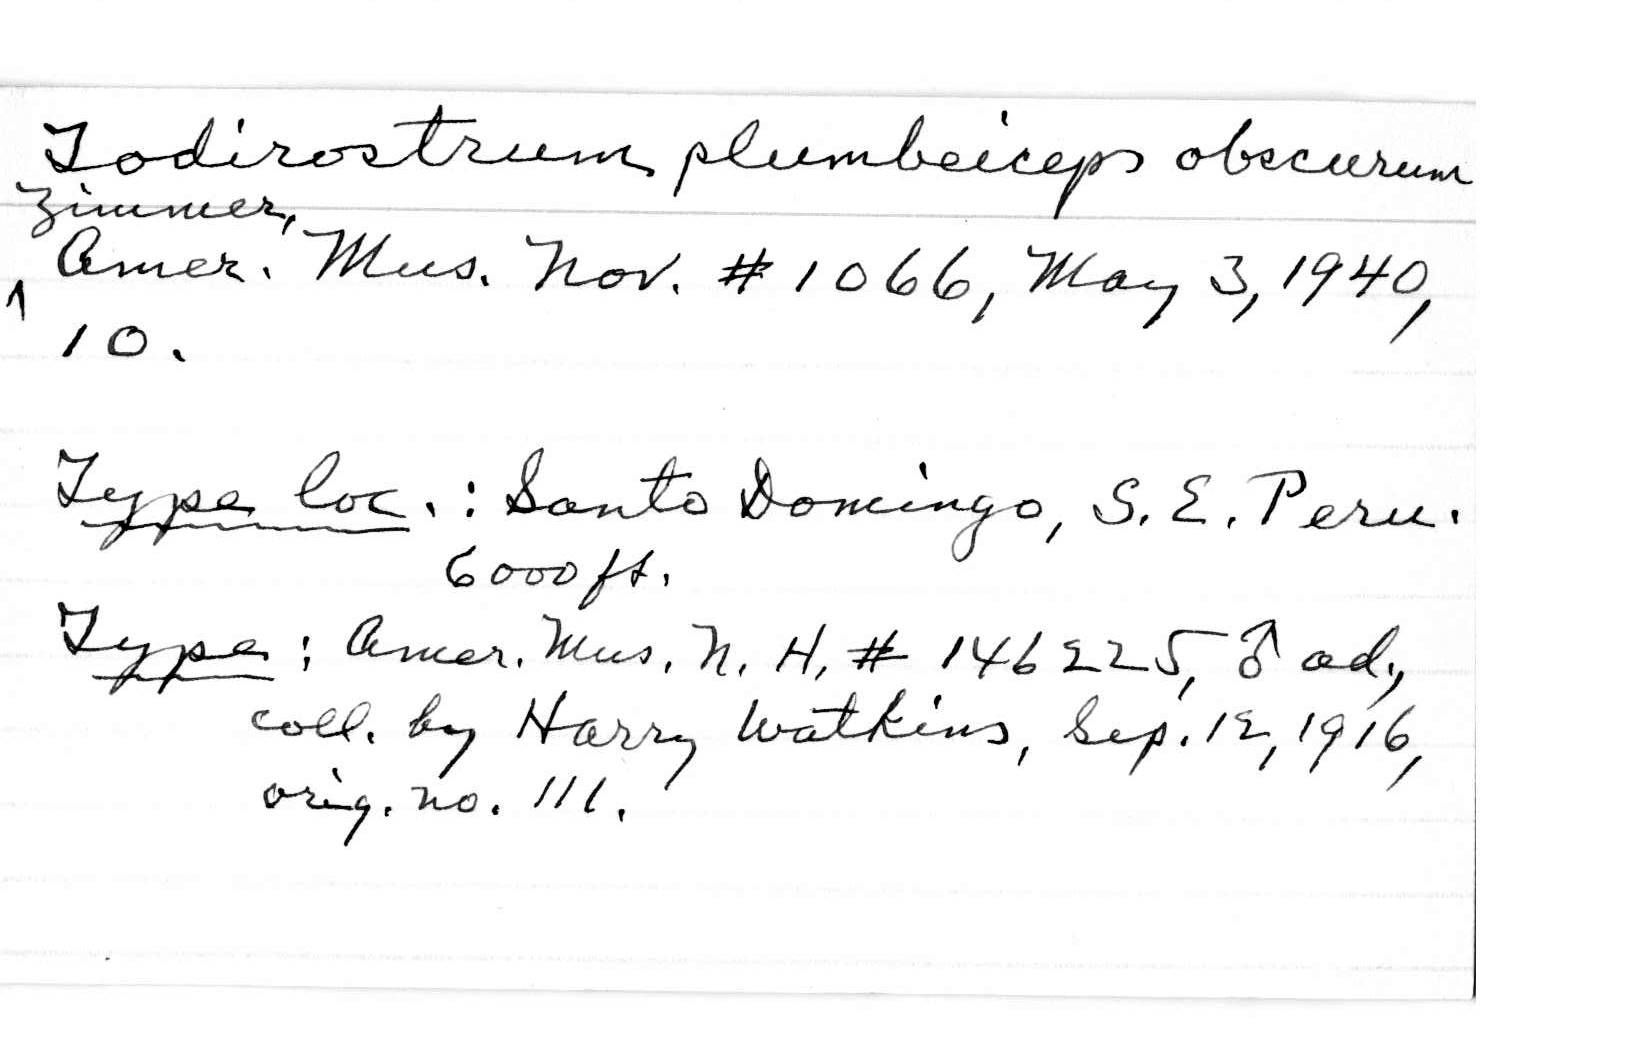 Todirostrum plumbeiceps obscurum
Zimmer,
^ Amer. Mus. Nov. # 1066, May 3, 1940,
10.
Type loc.: Santo Domingo, S.E. Peru.
6000 ft.
Type: Amer. Mus. N. H. # 146225, ♂ ad.,
coll. by Harry Watkins, Sep. 12, 1916,
orig. no. 111.